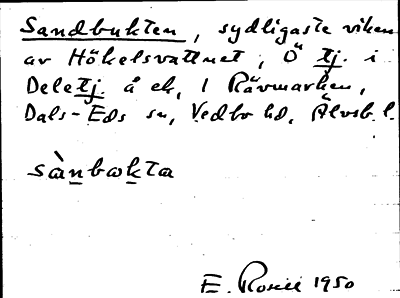 Sandbukten, sydligaste viken
av Hökelsvattnet, Ö tj. i
Deletj. å ek, i Rävmarken,
Dals-Eds sn, Vedbo hd, Älvsb. l.
sànbωkta
E. Rosell 1950